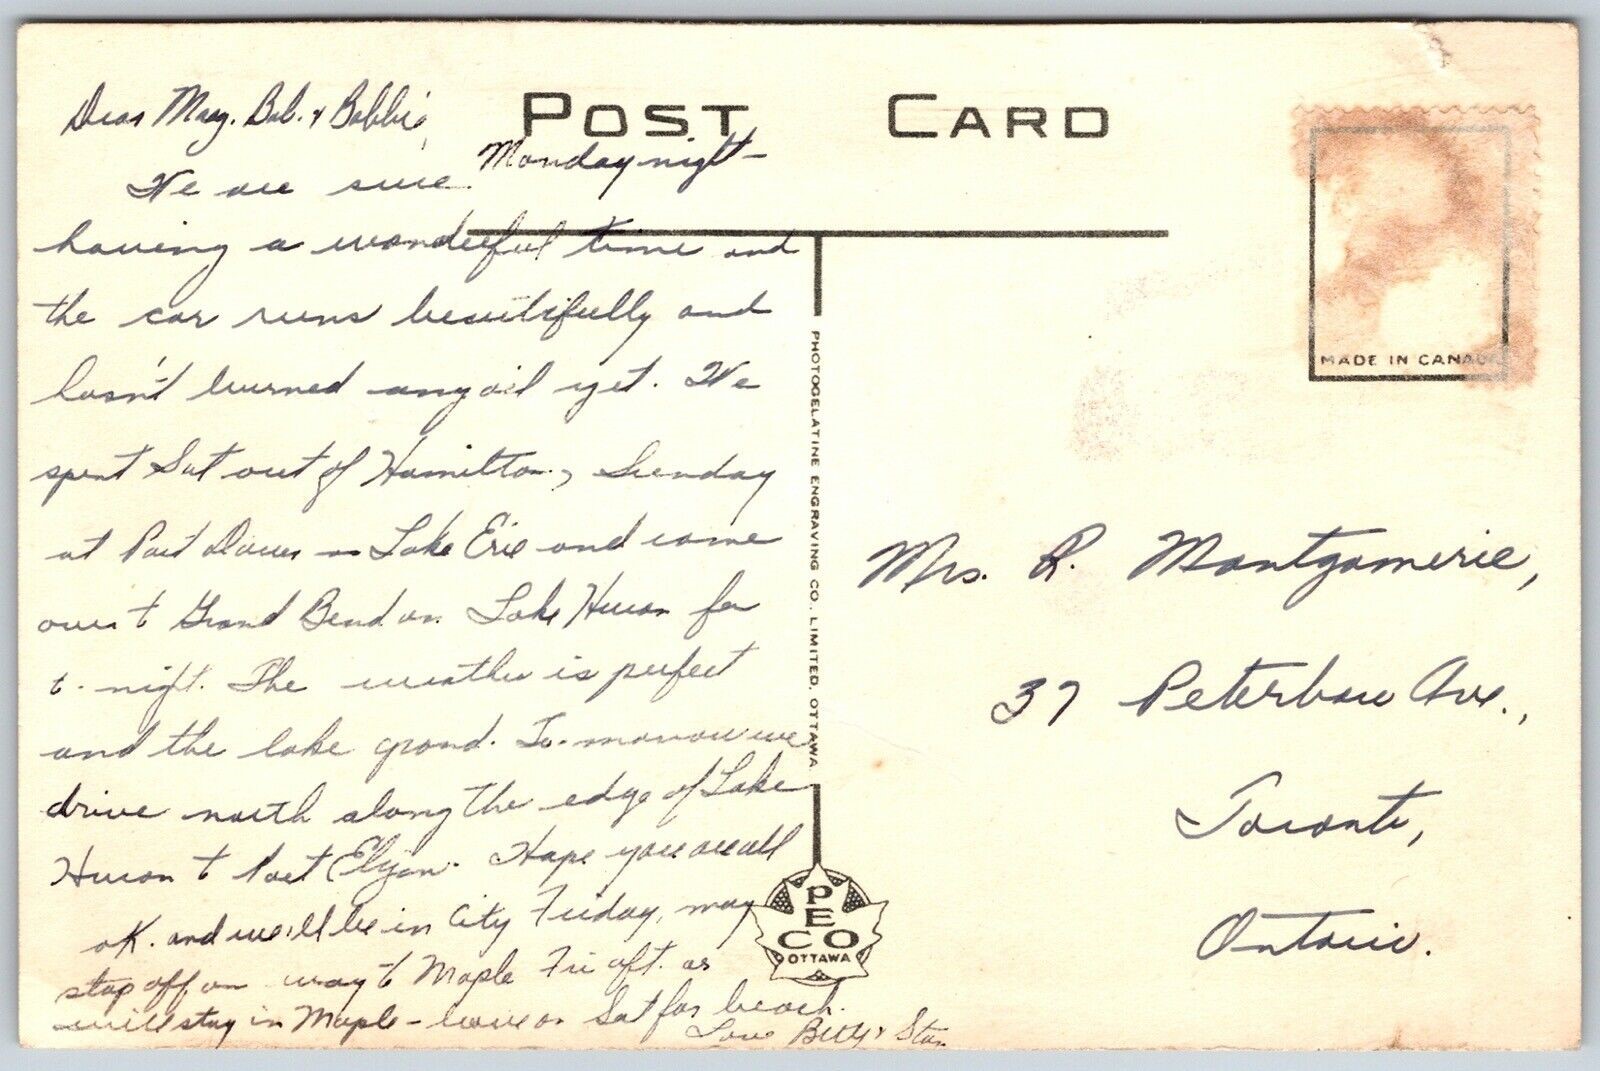 POST CARD
Dear Mary, Bob. & Bobbie,
Monday night-
We are sure
having a wonderful time and
the car runs beautifully and
hasn't burned any oil yet. We
spent Sat out of Hamilton, Sunday
at Port Dover on Lake Erie and came
over to Grand Bend on Lake Huron for
to-night. The weather is perfect
and the lake grand. To-morrow we
drive north along the edge of Lake
Huron to Port Elgin. Hope you are all
OK. and we'll be in City Friday, may
stop off on way to Maple Fri aft. as
will stay in Maple - leave on Sat for beach.
Love Betty & Stan
PHOTOGELATINE ENGRAVING CO., LIMITED, OTTAWA
PECO
OTTAWA
MADE IN CANADA
Mrs. R. Montgomerie,
37 Peterboro Ave.,
Toronto,
Ontario.